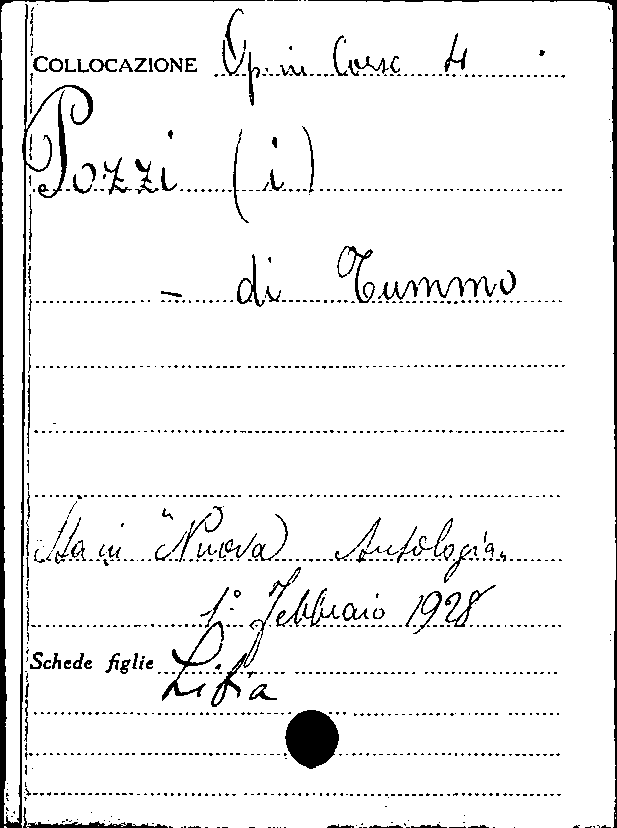 COLLOCAZIONE Op. in Corso 4
Pozzi (i)
- di Tummo
Sta in "Nuova Antologia"
1° Febbraio 1928
Schede figlie
Libia